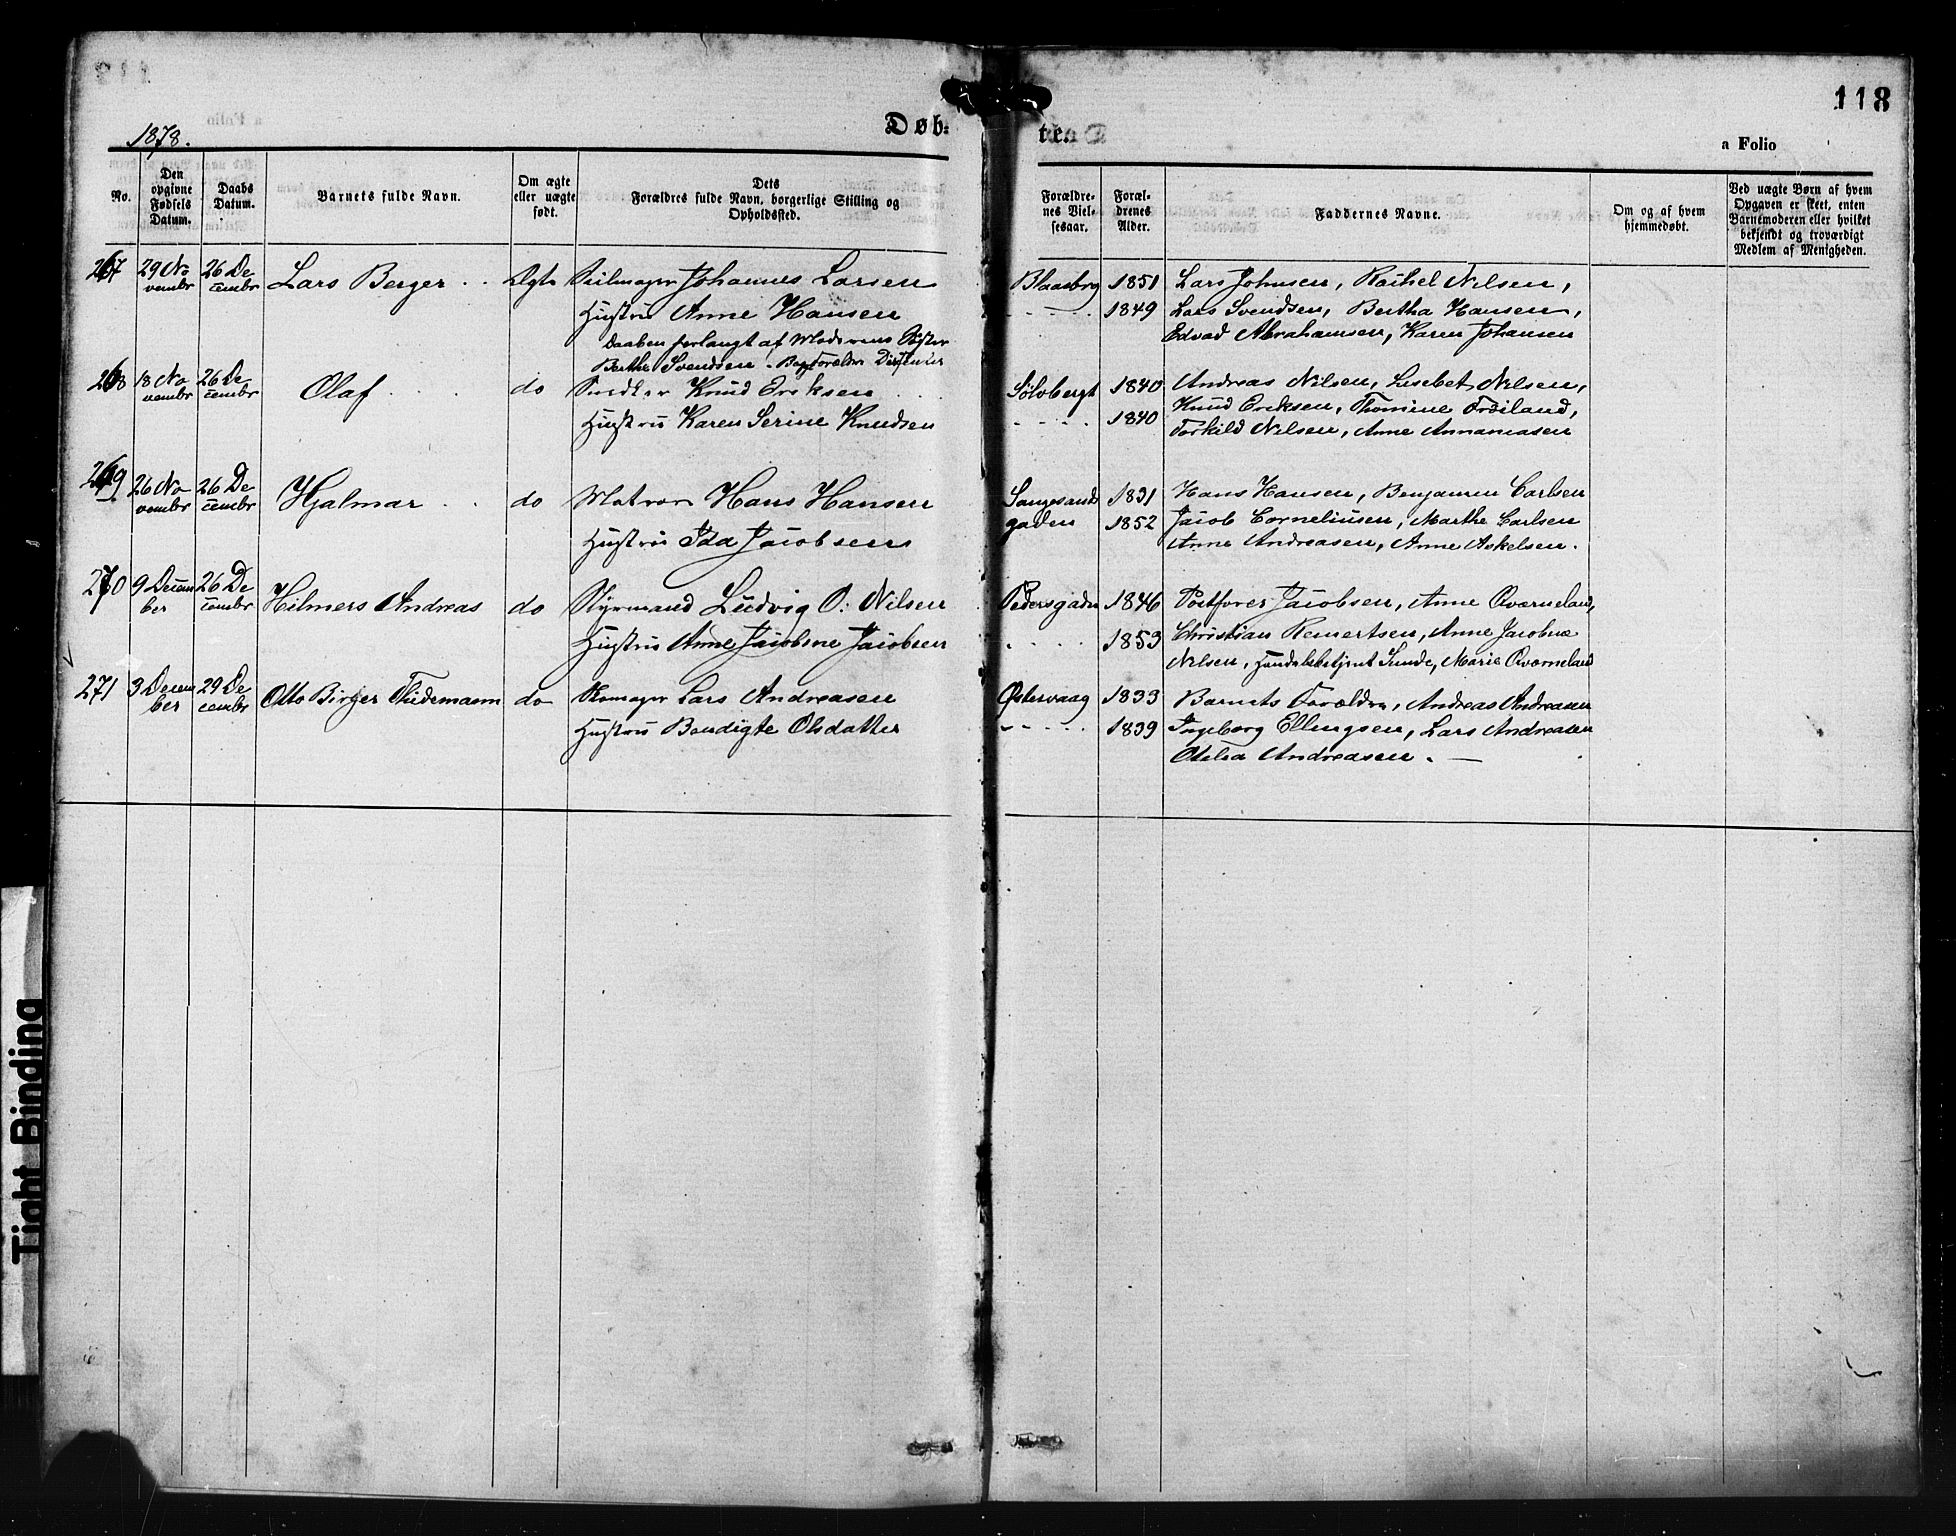 118
Døb- te.
1878.
a Folio
No.
Den opgivne Fødsels Datum.
Daabs Datum.
Barnets fulde Navn.
Om ægte eller uægte født.
Dets Forældres fulde Navn, borgerlige Stilling og Opholdssted.
Forældrenes Vielsesaar.
Forældrenes Alder.
Faddernes Navne.
Om og af hvem hjemmedøbt.
Ved uægte Børn af hvem Opgaven er skeet, enten Barnemoderen eller hvilket bekjendt og troværdigt Medlem af Menigheden.
267 29 No 26 De Lars Berger Ægte Seilmager Johannes Larsen Blaasbrg 1851 Lars Johnsen, Rachel Nilsen,
vembr cembr Hustru Anne Hansen 1849 Lars Svendsen, Bertha Hansen,
Daaben forlangt af Moderens Edvad Abrahamsen, Karen Johansen
Berthe Svendsen.
268 18 No 26 De Olaf do Snedker Knud Ereksen Sölvbergt 1840 Andreas Nilsen, Lisebet Nilsen,
vembr cembr Hustru Karen Serine Knudsen 1840 Knud Ereksen, Thomine Fröiland,
Torkild Nilsen, Anne Annaniasen
269 26 No 26 De Hjalmar do Matros Hans Hansen Langesands 1831 Hans Hansen, Benjamin Carlsen
vembr cembr Hustru Ida Jacobsen gaden 1852 Jacob Corneliusen, Marthe Carlsen
Anne Andreasen, Anne Askelsen.
270 9 Decem 26 De Hilmers Andreas do Styrmand Ludvig O: Nilsen Pedersgaden 1846 Postfører Jacobsen, Anne Qværneland,
ber cembr Hustru Anne Jacobine Jacobsen 1853 Christian Reinertsen, Anne Jacobine
Nilsen, Handelsbetjent Sunde, Marie Qværneland
271 3 Decem 29 De Otto Birger Tidemann do Skomager Lars Andreasen Østervaag 1833 Barnets Forældre, Andreas Andreasen
ber cembr Hustru Bendigte Olsdatter 1839 Ingeborg Ellingsen, Lars Andreasen
Otelia Andreasen.
Tight Binding